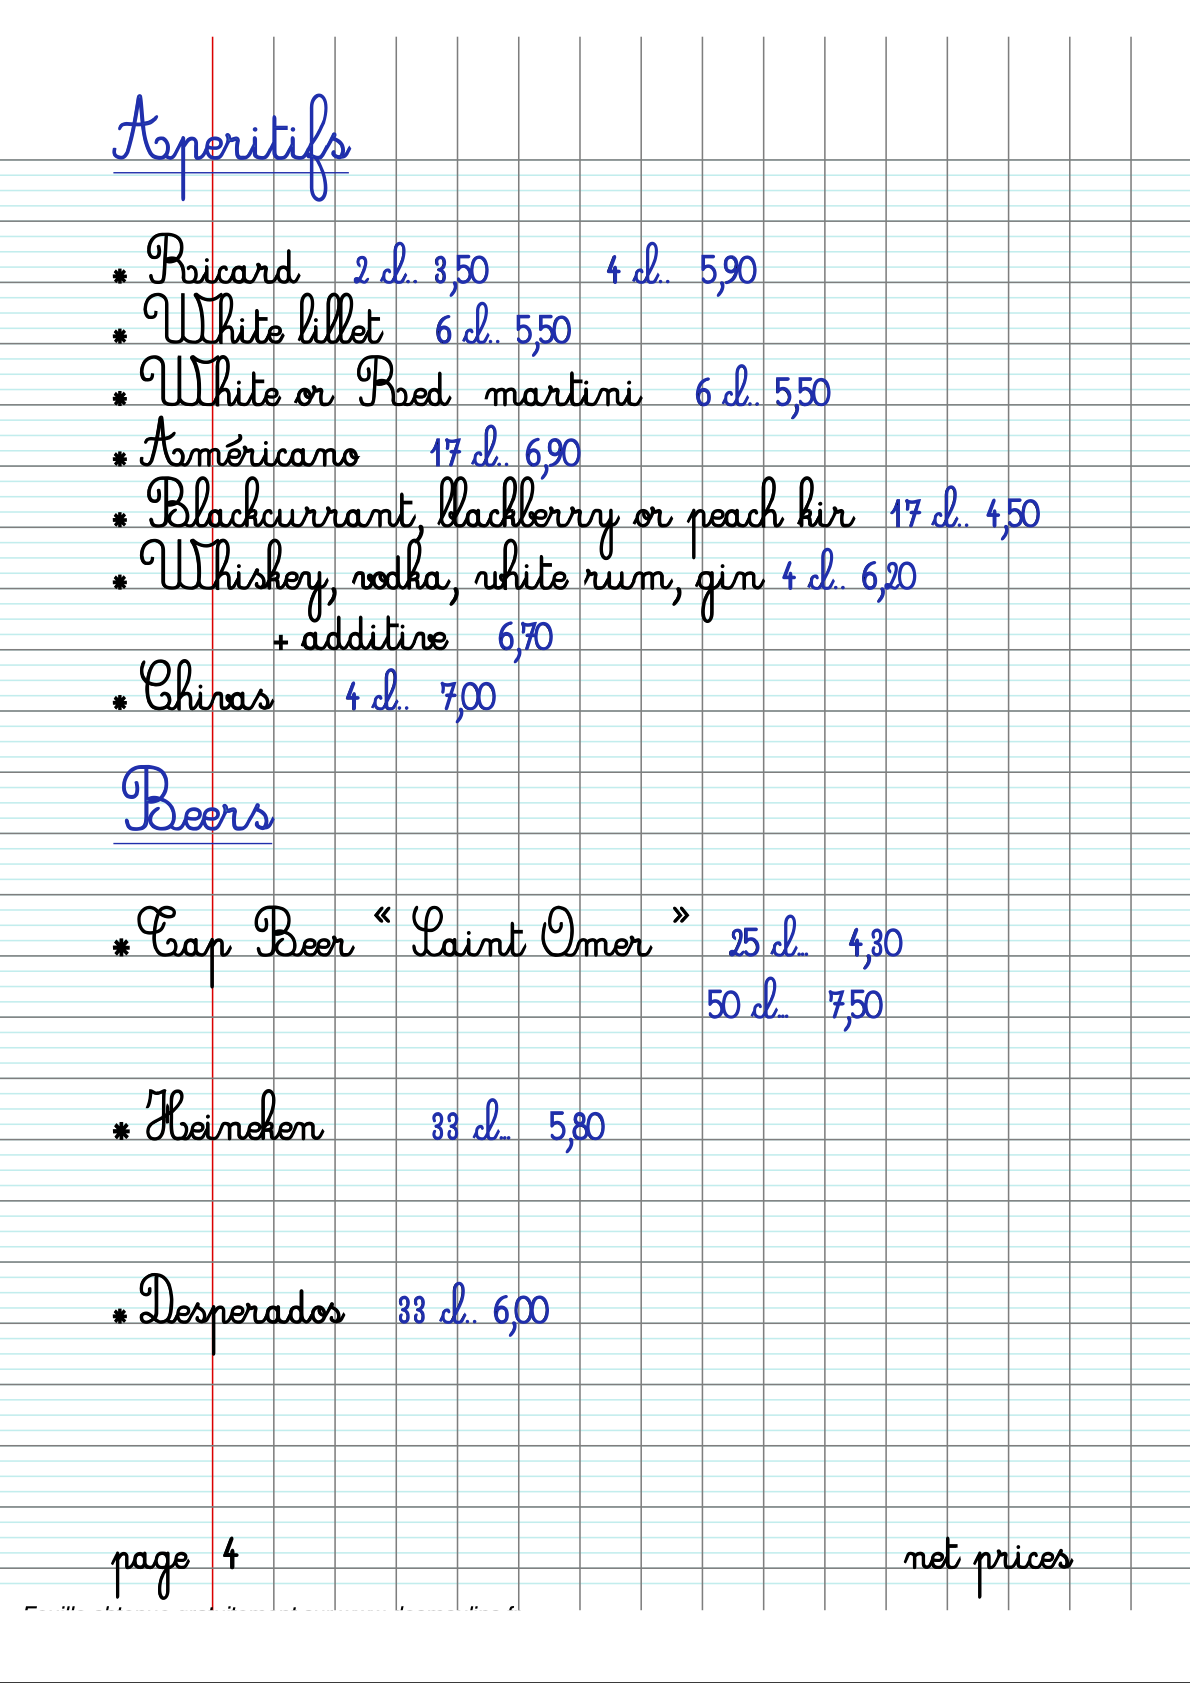 Aperitifs
* Ricard 2 cl.. 3,50 4 cl.. 5,90
* White lillet 6 cl.. 5,50
* White or Red martini 6 cl.. 5,50
* Américano 17 cl.. 6,90
* Blackcurrant, blackberry or peach kir 17 cl.. 4,50
* Whiskey, vodka, white rum, gin 4 cl.. 6,20
+ additive 6,70
* Chivas 4 cl.. 7,00
Beers
* Tap Beer « Saint Omer » 25 cl... 4,30
50 cl... 7,50
* Heineken 33 cl... 5,80
* Desperados 33 cl.. 6,00
page 4 net prices